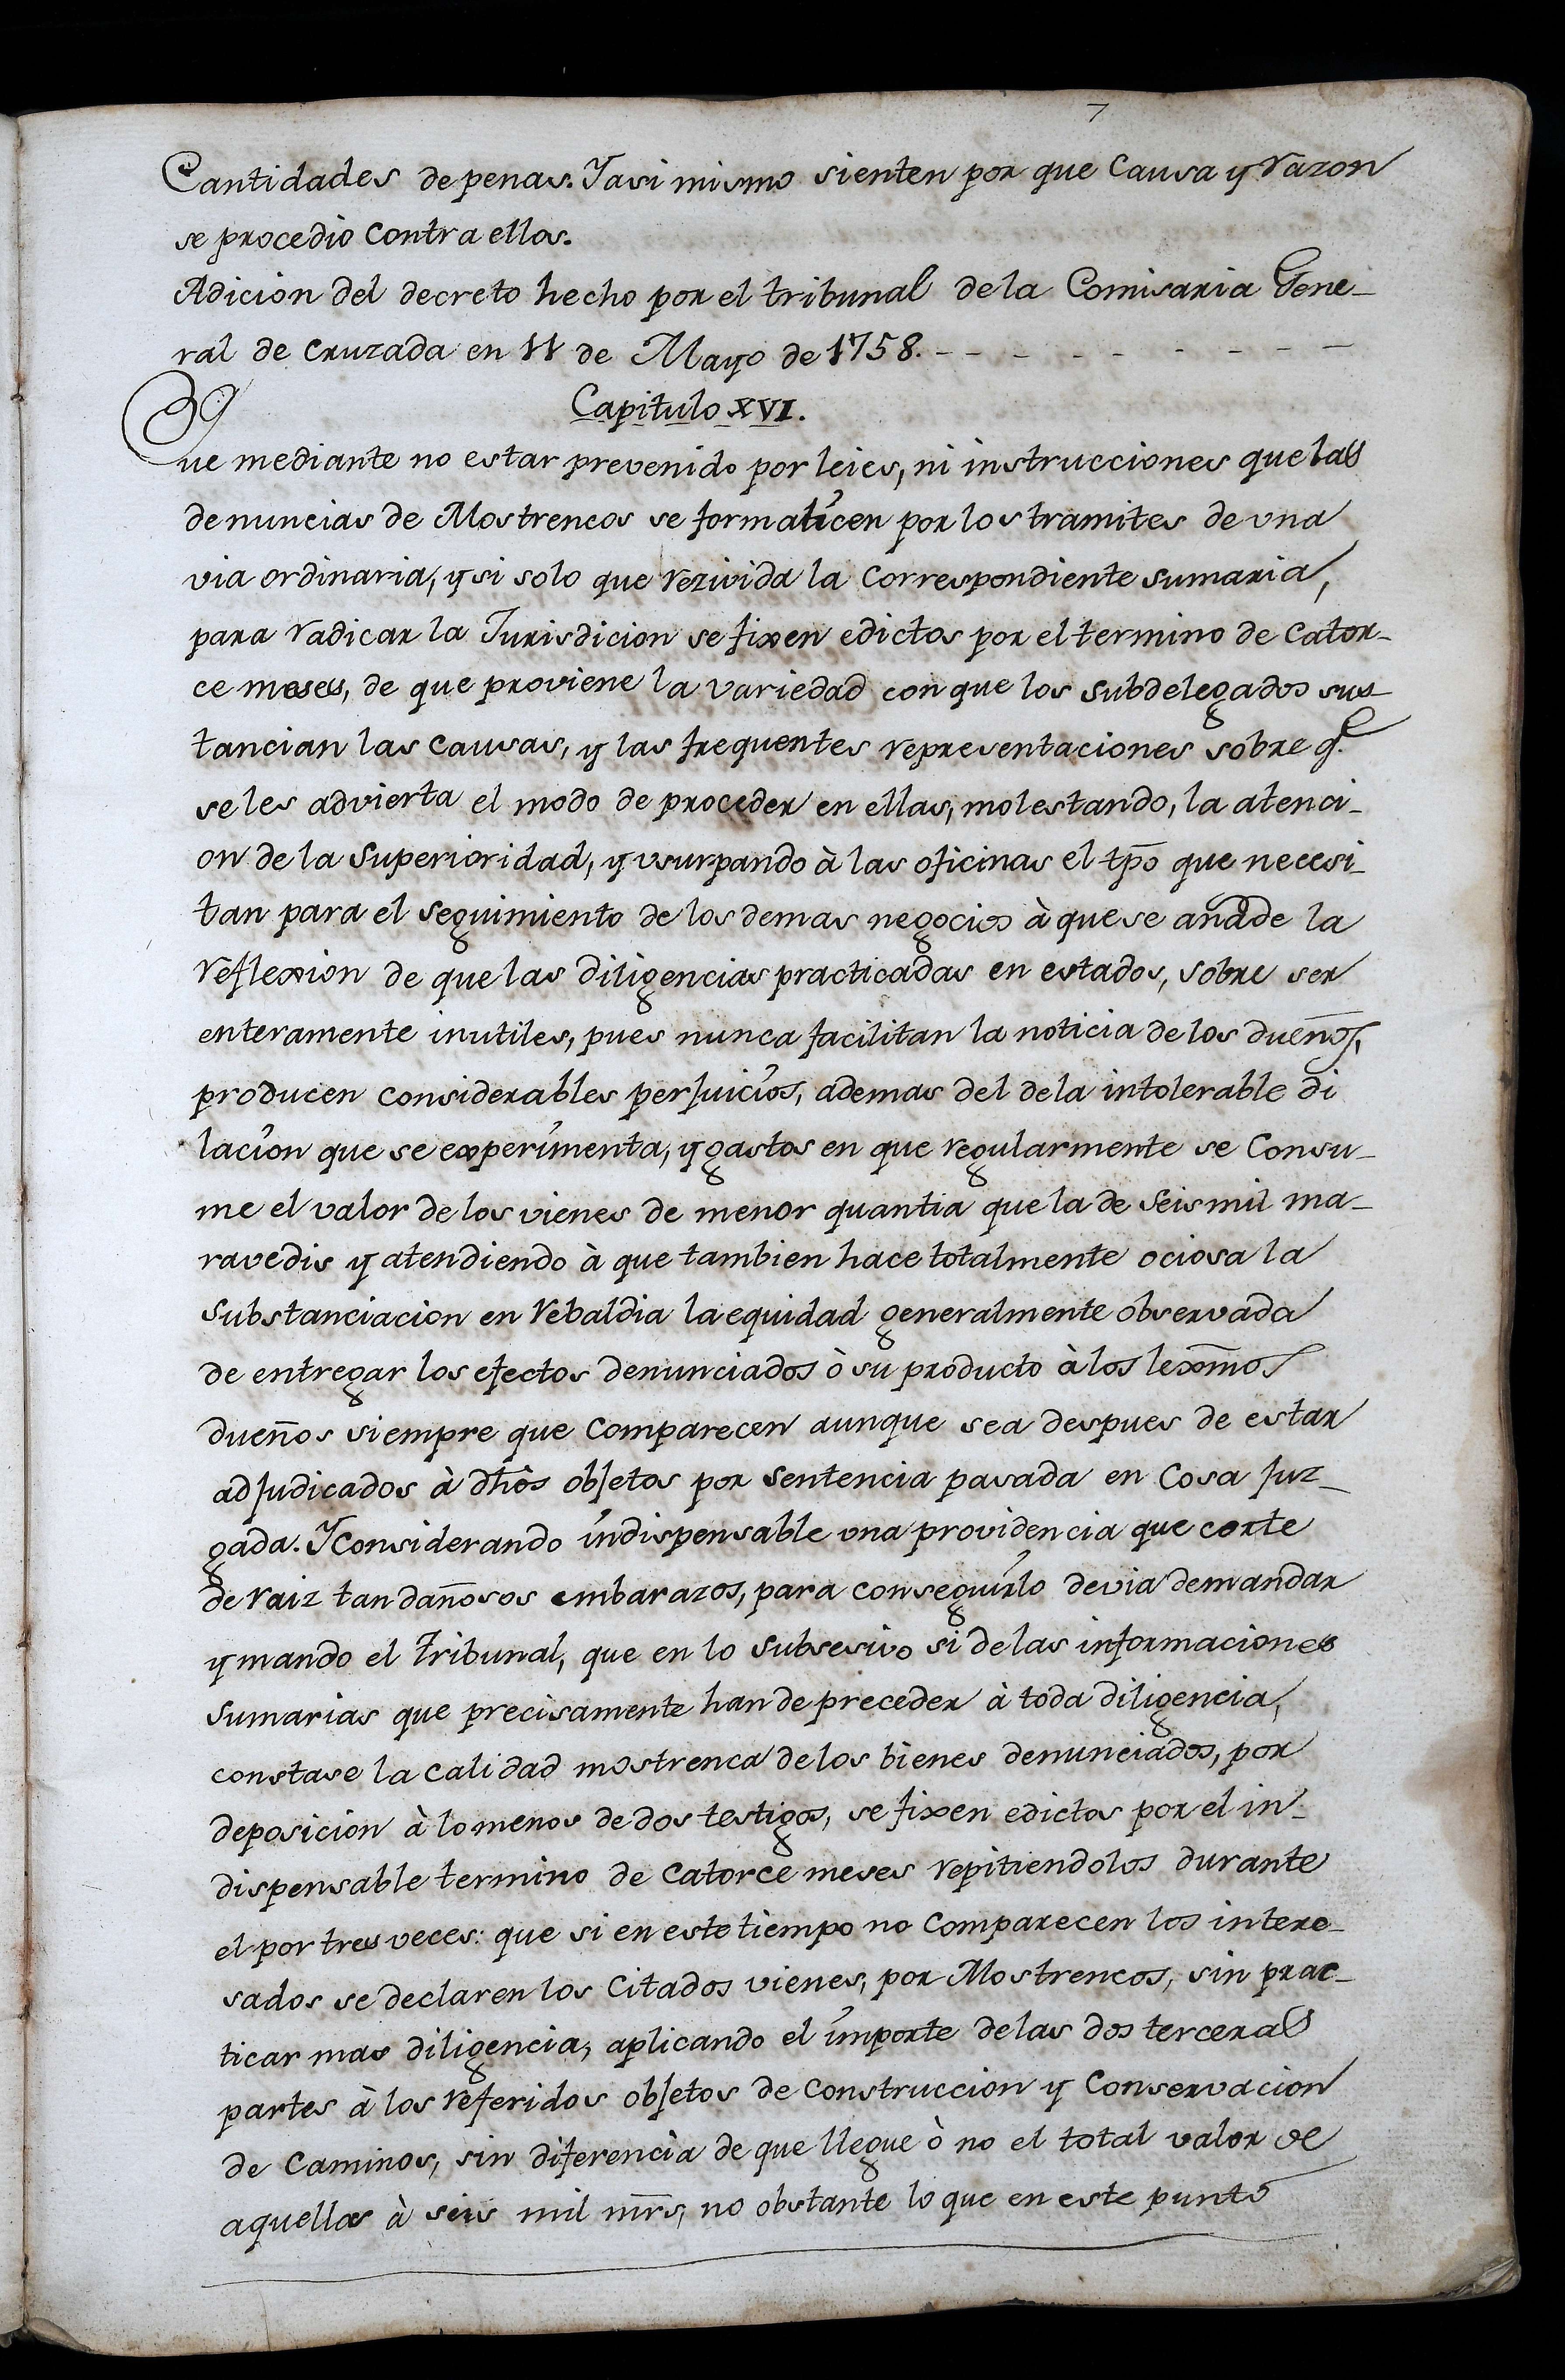 7
Cantidades de penas. Y asi mismo sienten por que Causa y razon
se procedio contra ellos.
Adicion del decreto hecho por el tribunal de la Comisaria Gene-
ral de Cruzada en 11 de Mayo de 1758.- - - - - - - - -
Capitulo XVI.
Que mediante no estar prevenido por leies, ni instrucciones que las
denuncias de Mostrencos se formalicen por los tramites de una
via ordinaria, y si solo que rezivida la correspondiente sumaria,
para radicar la Jurisdicion se fixen edictos por el termino de Cator-
ce meses, de que proviene la variedad con que los subdelegados sus-
tancian las causas, y las frequentes representaciones sobre q.e
se les advierta el modo de proceder en ellas, molestando, la atenci-
on de la Superioridad, y vsurpando à las oficinas el tp̄o que necesi-
tan para el seguimiento de los demas negocios à que se añade la
reflexion de que las diligencias practicadas en estados, sobre ser
enteramente inutiles, pues nunca facilitan la noticia de los dueños,
producen considerables perjuicios, ademas del de la intolerable di
lacion que se experimenta, y gastos en que regularmente se Consu-
me el valor de los vienes de menor quantia que la de seis mil ma-
ravedis y atendiendo à que tambien hace totalmente ociosa la
substanciacion en rebaldia la equidad generalmente observada
de entregar los efectos denunciados ò su producto à los lexm̄os
dueños siempre que Comparecen aunque sea despues de estar
adjudicados à dhôs objetos por sentencia pasada en Cosa juz-
gada. Y considerando indispensable vna providencia que corte
de raiz tan dañosos embarazos, para conseguirlo devia demandar
y mando el tribunal, que en lo subsesivo si de las informaciones
sumarias que precisamente han de preceder à toda diligencia,
constase la calidad mostrenca de los bienes denunciados, por
deposicion à lo menos de dos testigos, se fixen edictos por el in-
dispensable termino de catorce meses repitiendolos durante
el por tres veces: que si en este tiempo no comparecen los intere-
sados se declaren los Citados vienes, por Mostrencos, sin prac-
ticar mas diligencia, aplicando el importe de las dos terceras
partes à los referidos objetos de Construccion y Conservacion
de Caminos, sin diferencia de que llegue ò no el total valor de
aquellos à seis mil mr̄s, no obstante lo que en este punto